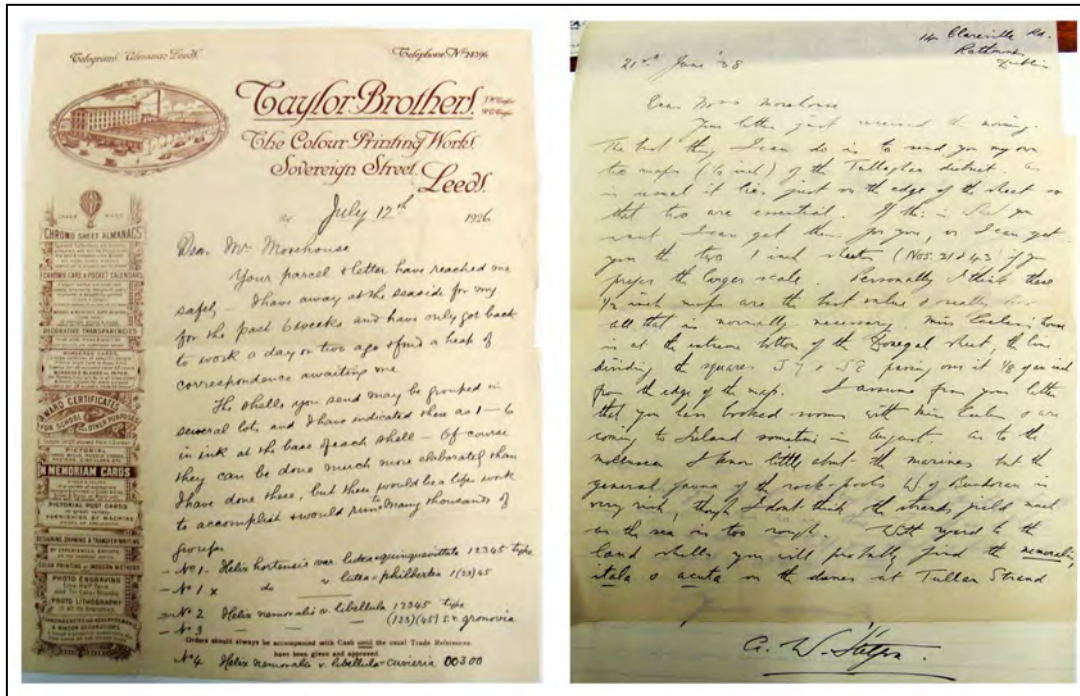 Telegrams Almanacs Leeds.
Telephone No 24396
Taylor Brothers.
The Colour Printing Works.
Sovereign Street.
Leeds.
July 12th 1926
TRADE MARK
CHROMO SHEET ALMANACS
CHROMO CARD & POCKET CALENDARS
DECORATIVE TRANSPARENCIES
AWARD CERTIFICATES
FOR SCHOOL & OTHER PURPOSES
PICTORIAL
IN MEMORIAM CARDS
PICTORIAL POST CARDS
VARNISHING BY MACHINE
DESIGNING, DRAWING & TRANSFER WRITING
BY EXPERIENCED ARTISTS
COLOR PRINTING BY MODERN METHODS
PHOTO ENGRAVING
PHOTO LITHOGRAPHY
Dear Mr Morehouse
Your parcel & letter have reached me
safely – I have away at the seaside for my
for the past 6 weeks and have only got back
to work a day or two ago & find a heap of
correspondence awaiting me
The shells you send may be grouped in
several lots and I have indicated these as 1–6
in ink at the base of each shell – Of course
they can be done much more elaborately than
I have done these, but these would be a life work
to accomplish & would run to many thousands of
groups
– No 1 – Helix hortensis var. lutea-quinquevittata 12345 type
– No 1 x do v lutea-philbertia 1(23)45
– No 2 Helix nemoralis v. libellula 12345 type
– No 3 (123)(45) s.v. gronovia
Orders should always be accompanied with Cash until the usual Trade References
have been given and approved.
No 4 Helix nemoralis v. libellula-cuvieria 00300
14 Clareville Rd.
Rathmines
Dublin
21st June '38
Dear Morehouse
Your letter just received this morning.
The best thing I can do is to send you my own
two maps (½ inch) of the Tullaghan district. As
is usual it lies just on the edge of the sheet so
that two are essential. If this is what you
want I can get them for you, or I can get
you the two 1 inch sheets (Nos. 31 & 43) if you
prefer the larger scale. Personally I think these
½ inch maps are the best value & really
all that is normally necessary. Miss house
is at the extreme bottom of the Donegal sheet, the line
dividing the squares & passing over it 1/8 of an inch
from the edge of the map. I assume from your letter
that you have booked rooms with Miss & are
coming to Ireland sometime in August. As to the
mollusca I know little about the marines but the
general fauna of the rock-pools W. of Bundoran is
very rich, though I don't think the strands yield much
as the sea is too rough. With regard to the
land shells you will probably find the nemoralis,
itala & acuta on the dunes at Tullan Strand
A. W. Stelfox.